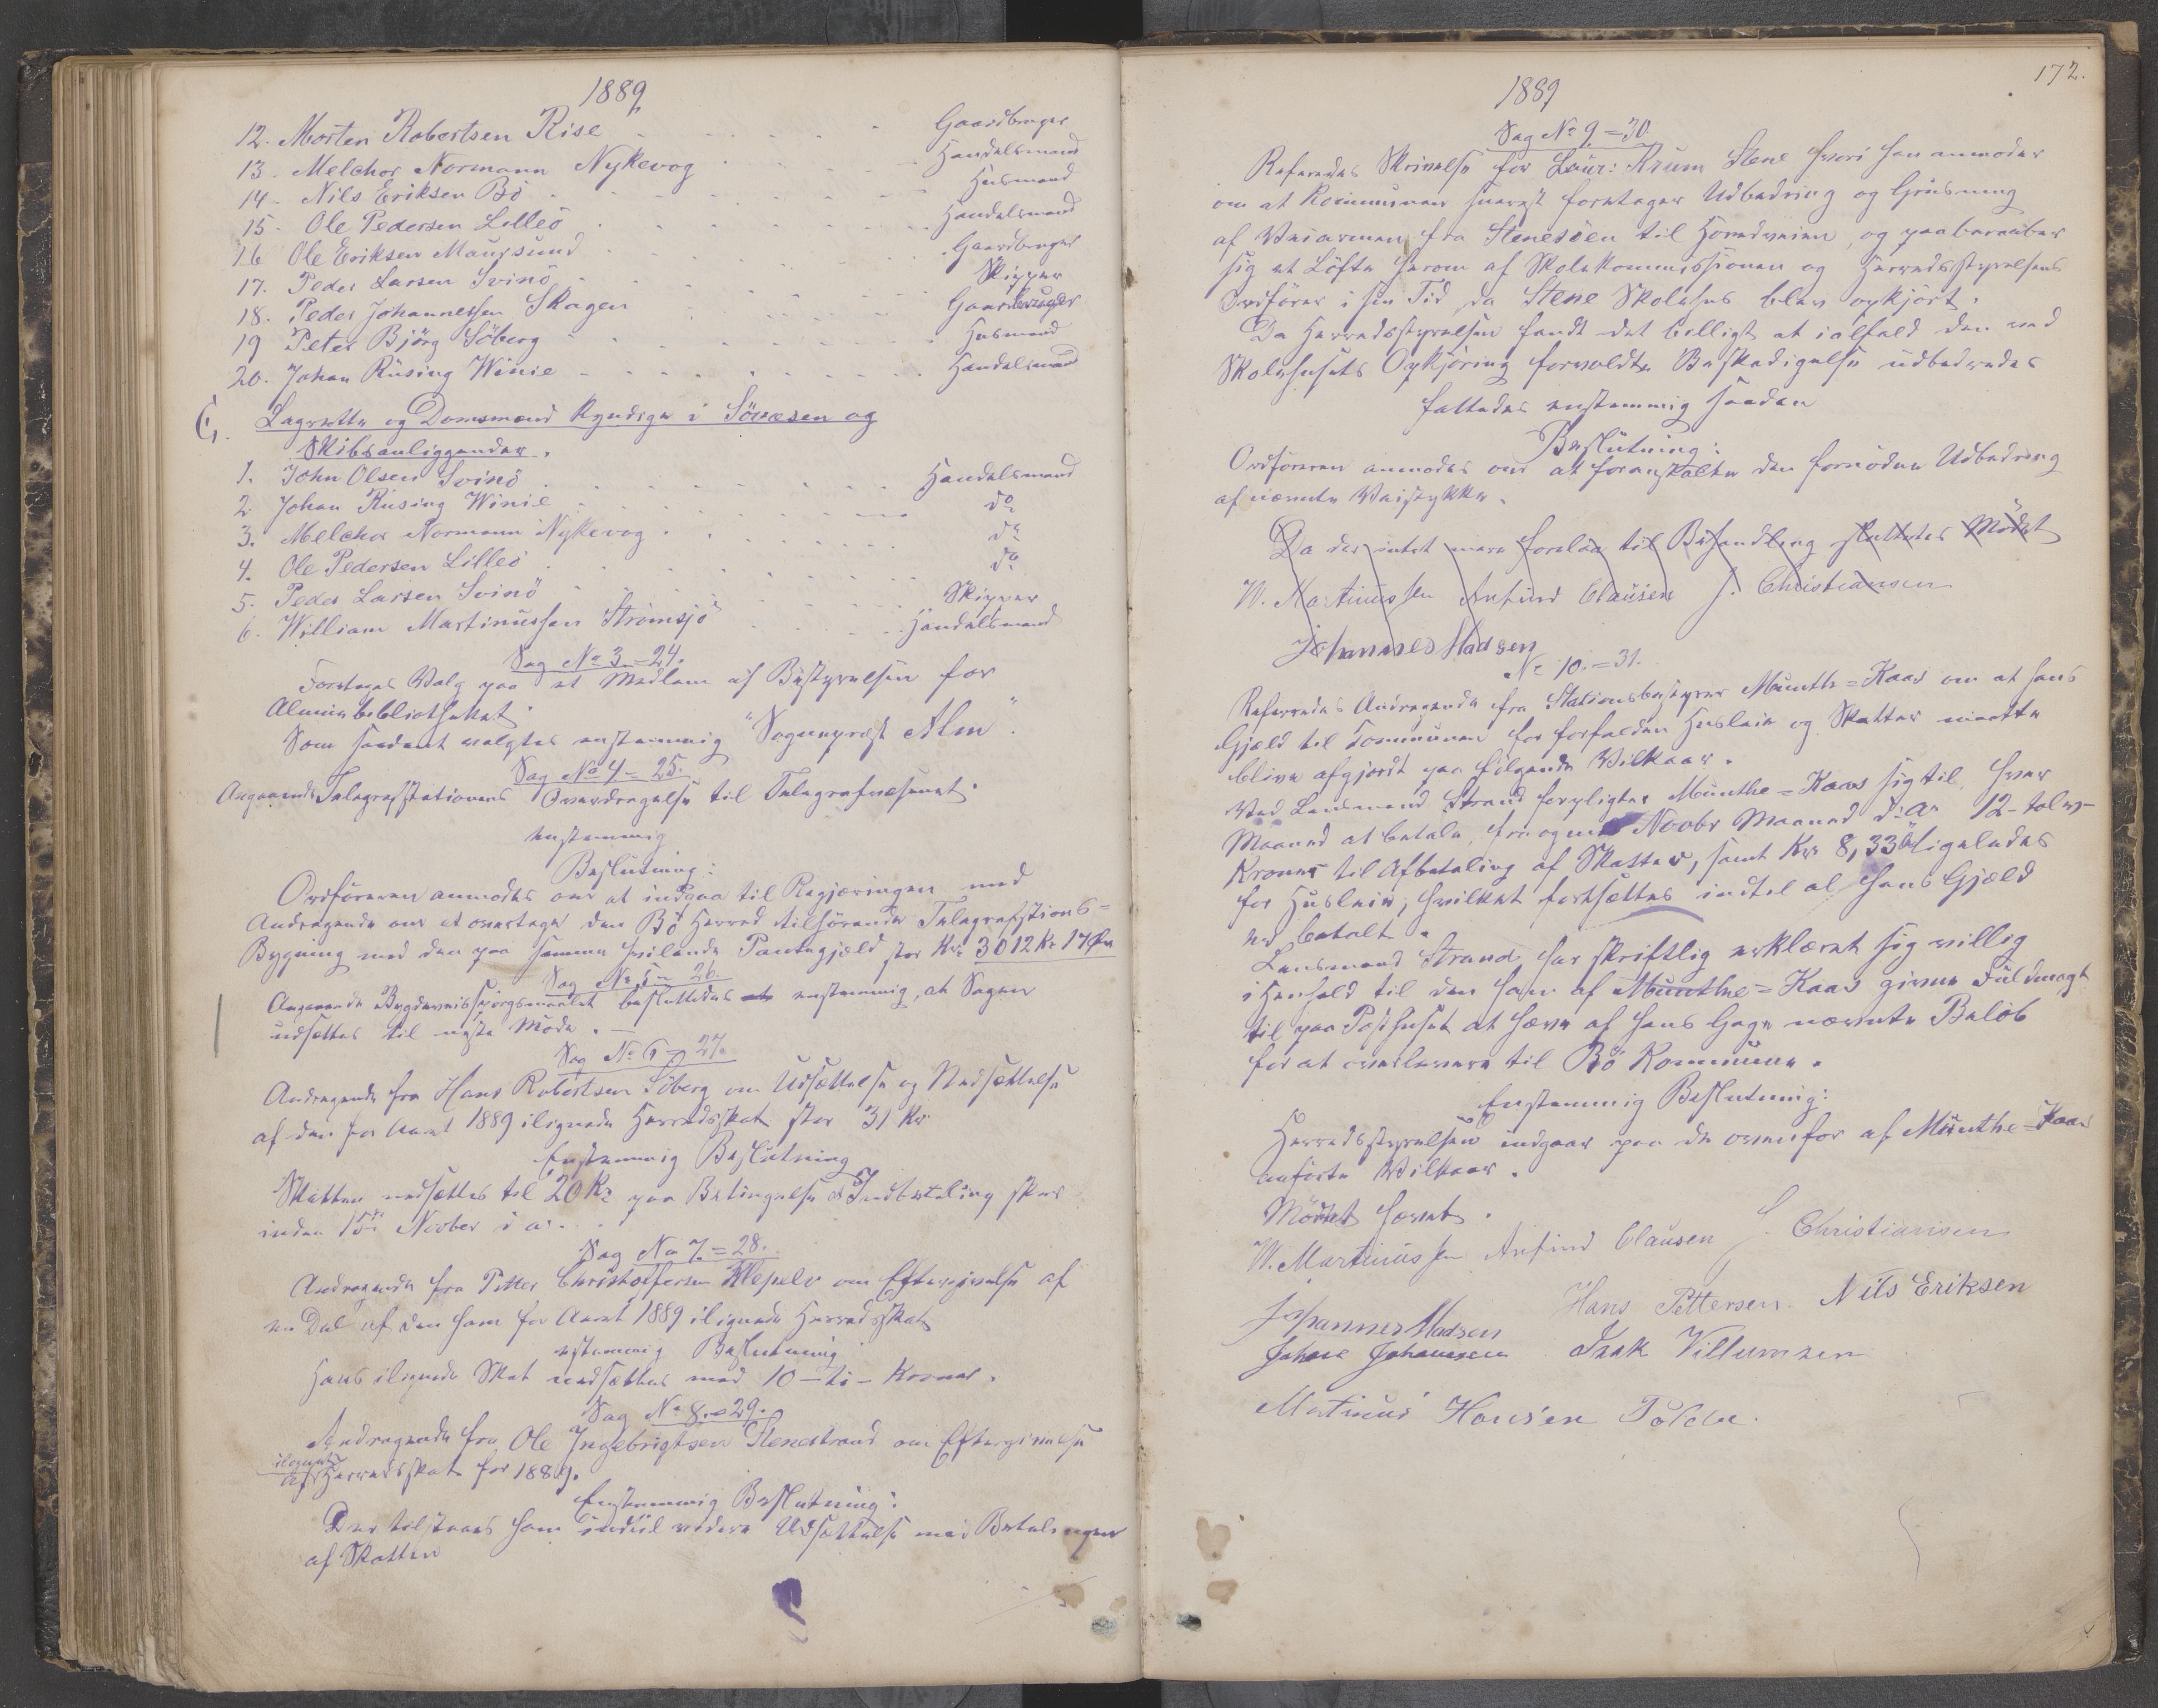 1889
12. Morten Robertsen Rise Gaardbruger
13. Melchor Normann Nykevog Handelsmand
14. Nils Eriksen Bö Husmand
15. Ole Pedersen Lilleö Handelsmand
16 Ole Eriksen Maursund Gaardbruger
17. Peder Larsen Svinö Skipper
18. Peder Johannessen Skagen Gaardbruger
19 Peter Björg Söberg Husmand
20. Johan Rüsing Winie Handelsmand
G. Lagrette og Domsmænd kyndige i Sövæsen og
Skibsanliggender.
1. John Olsen Svinö Handelsmand
2 Johan Rüsing Winie do
3. Melchor Normann Nykevog do
4. Ole Pedersen Lilleö do
5. Peder Larsen Svinö Skipper
6. William Martinussen Strömsjö Handelsmand
Sag No 3 = 24.
Foretages Valg paa et Medlem af Bestyrelsen for
Almuebibliotheket.
Som saadant valgtes enstemmig "Sogneprest Alm".
Sag No 4 = 25.
Angaaende Telegrafstationens Overdragelse til Telegrafvæsenet.
enstemmig
Beslutning:
Ordföreren anmodes om at indgaa til Regjeringen med
Andragende om at overtage den Bö Herred tilhörende Telegrafstions=
Bygning med den paa samme hvilende Pantegjæld stor Kr. 3012 Kr 17 Öre
Sag No 5 = 26.
Angaaende Bygdeveisspörgsmaalet besluttedes enstemmig, at Sagen
udsættes til neste Möde. —
Sag No 6 = 27.
Andragende fra Hans Robertsen Söberg om Udsættelse og Nedsættelse
af den for Aaret 1889 ilignede Herredsskat stor 31 Kr
Enstemmig Beslutning
Skatten nedsættes til 20 Kr paa Betingelse at Indbetaling sker
inden 15de Novber i a.
Sag No 7 = 28.
Andragende fra Petter Christoffersen Klepelv om Eftergivelse af
en Del af den ham for Aaret 1889 ilignede Herredsskat
enstemmig Beslutning
Hans ilignede Skat nedsættes med 10 – ti – Kroner.
Sag No 8 = 29.
Andragende fra Ole Ingebrigtsen Stenestrand om Eftergivelse
ilignet
af Herredsskat for 1889.
Enstemmig Beslutning:
Der tilstaaes ham indtil videre Udsættelse med Betalingen
af Skatten
172.
1889
Sag No 9 = 30.
Refereredes Skrivelse fra Laur: Krum Stene hvori han anmoder
om at Kommunen snarest foretager Udbedring og Grusning
af Veiarmen fra Stenesöen til Hovedveien, og paaberaaber
sig et Löfte herom af Skolekommissionen og Herredsstyrelsens
Ordförer i sin Tid, da Stene Skolehus blev opkjört.
Da Herredsstyrelsen fandt det billigt at ialfald den ved
Skolehusets Opkjöring forvoldte Beskadigelse udbedredes
fattedes enstemmig saadan
Beslutning:
Ordföreren anmodes om at foranstalte den fornödne Udbedring
af nævnte Veistykke.
Da der intet mere forelaa til Behandling sluttedes Mödet
W. Martinussen Anfind Clausen J. Christiansen
Johannes Madsen
No 10 = 31.
Refereredes Andragende fra Stationsbestyrer Munthe=Kaas om at hans
Gjæld til Kommunen for forfalden Husleie og Skatter maatte
blive afgjordt paa følgende Vilkaar.
Ved Lensmand Strand forpligter Munthe=Kaas sig til, hver
Maaned at betale, fra og med Novbr Maaned d.a. 12-tolv-
Kroner til Afbetaling af Skatter, samt Kr 8,33 ligeledes
for Husleie, hvilket fortsættes indtil al hans Gjæld
er betalt.
Lensmand Strand har skriftlig erklæret sig villig
i Henhold til den ham af Munthe=Kaas givne Fuldmagt
til paa Posthuset at hæve af hans Gage nævnte Belöb
for at overlevere til Bö Kommune.
Enstemmig Beslutning:
Herredsstyrelsen indgaar paa de ovenfor af Munthe=Kaas
anförte Vilkaar.
Mödet hævet.
W. Martinussen Anfind Clausen J. Christiansen
Johannes Madsen Hans Pettersen. Nils Eriksen
Johan Johannesen Isak Villumsen
Martinus Hansen